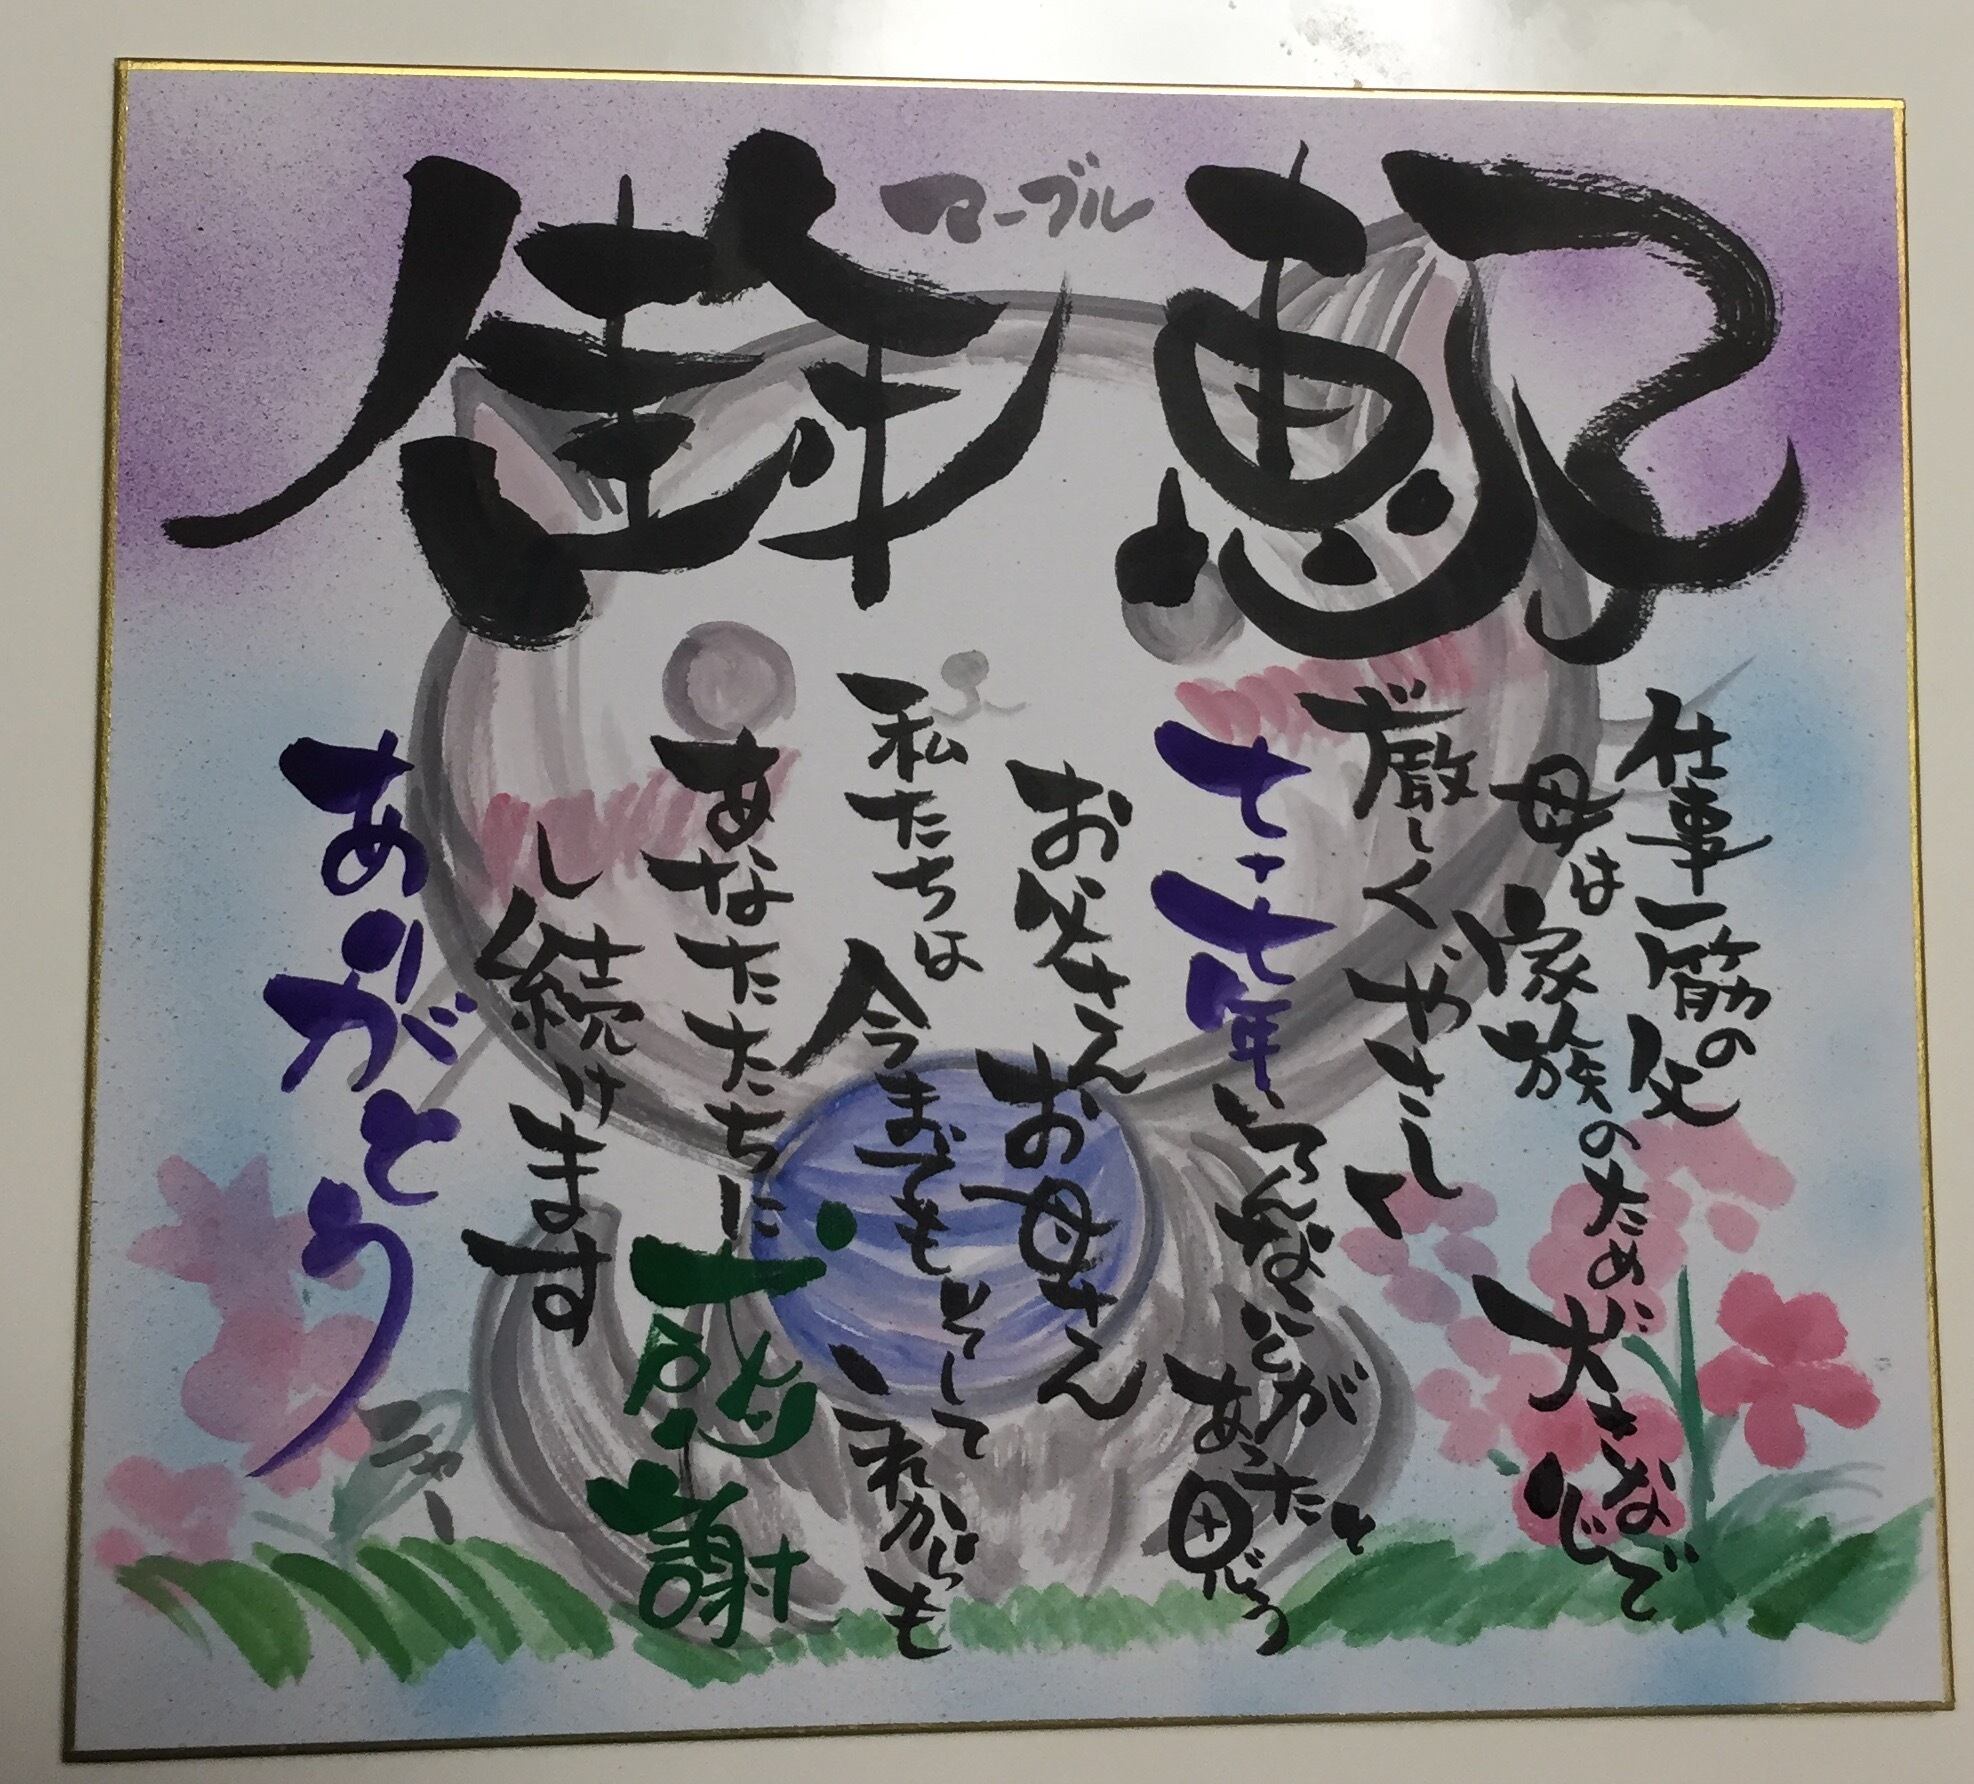 マーブル
恵
佳
仕事一筋の父
母は家族のために大きな心で
厳しくやさしく
年いろんなことがあったと思う
お父さんお母さん
私たちは今までもそしてこれからも
あなたたちに感謝
し続けます
ありがとう
ニャー